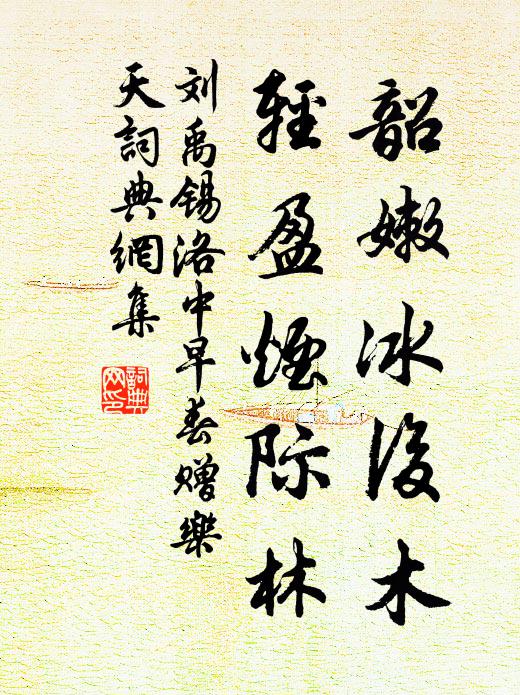 韶嫩冰後木
輕盈煙际林
刘禹锡洛中早春赠樂
天詞典網集
詞典
网印